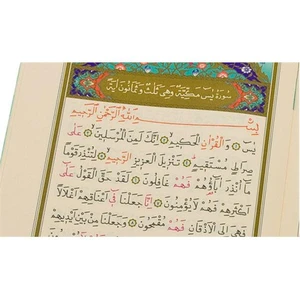 سورة يس مكية وهي ثلث وثمانون آية
بسم الله الرحمن الرحيم
يس ۝ والقرآن الحكيم ۝ انك لمن المرسلين ۝ على
صراط مستقيم ۝ تنزيل العزيز الرحيم ۝ لتنذر قوما
ما انذر آباؤهم فهم غافلون ۝ لقد حق القول على
اكثرهم فهم لا يؤمنون ۝ انا جعلنا في اعناقهم اغلالا
فهي الى الاذقان فهم مقمحون ۝ وجعلنا من بين ايديهم